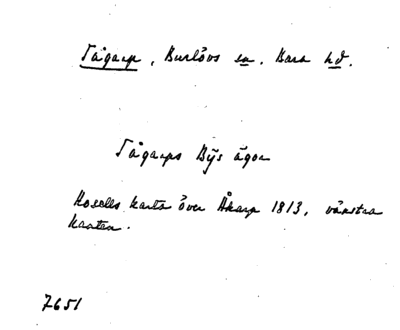 Tågarp, Burlövs sn. Bara hd.
Tågarps Bÿs ägor
karta över Åkarp 1813, västra
kanten.
7651